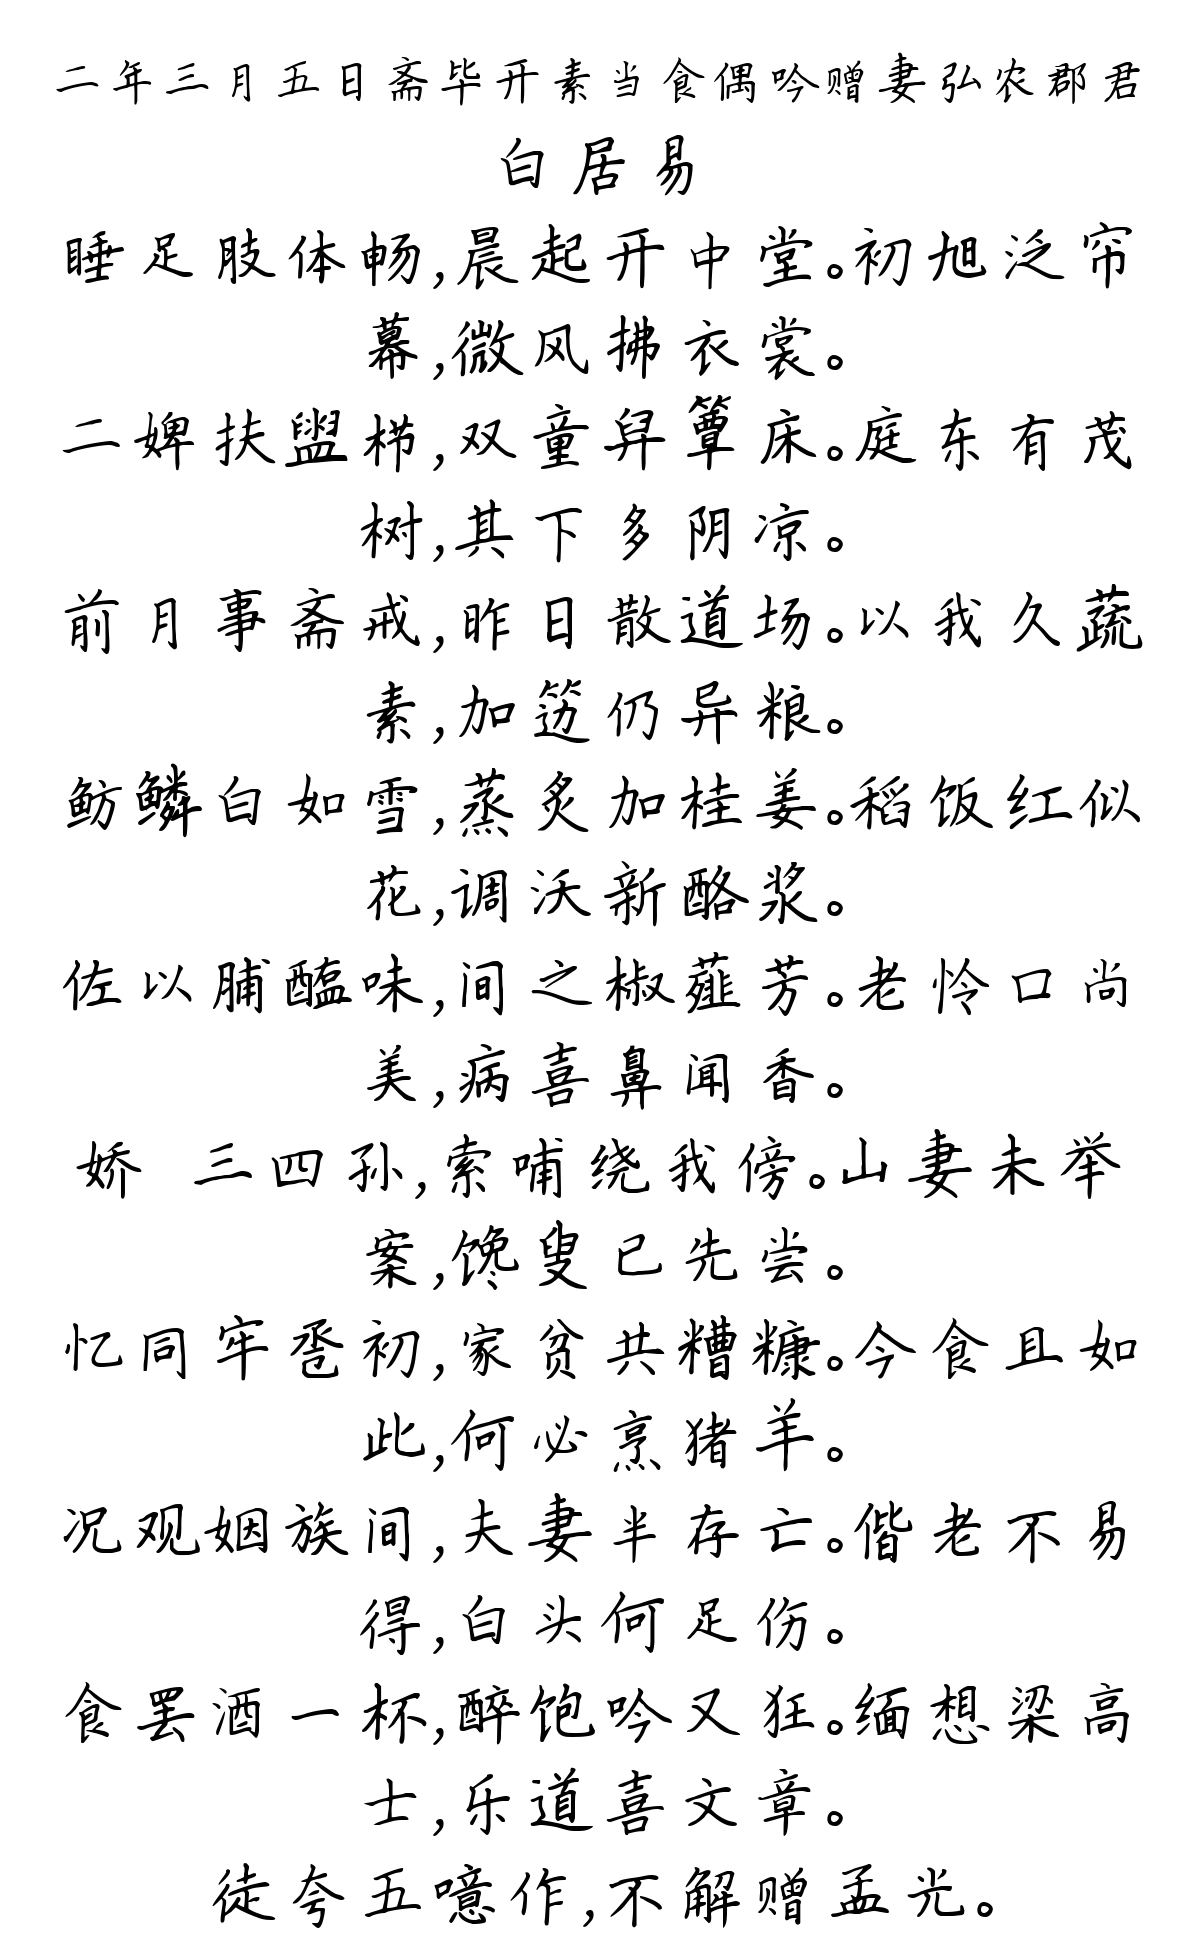 二年三月五日斋毕开素当食偶吟赠妻弘农郡君
白居易
睡足肢体畅,晨起开中堂。初旭泛帘
幕,微风拂衣裳。
二婢扶盥栉,双童舁簟床。庭东有茂
树,其下多阴凉。
前月事斋戒,昨日散道场。以我久蔬
素,加笾仍异粮。
鲂鳞白如雪,蒸炙加桂姜。稻饭红似
花,调沃新酪浆。
佐以脯醢味,间之椒薤芳。老怜口尚
美,病喜鼻闻香。
娇 三四孙,索哺绕我傍。山妻未举
案,馋叟已先尝。
忆同牢卺初,家贫共糟糠。今食且如
此,何必烹猪羊。
况观姻族间,夫妻半存亡。偕老不易
得,白头何足伤。
食罢酒一杯,醉饱吟又狂。缅想梁高
士,乐道喜文章。
徒夸五噫作,不解赠孟光。